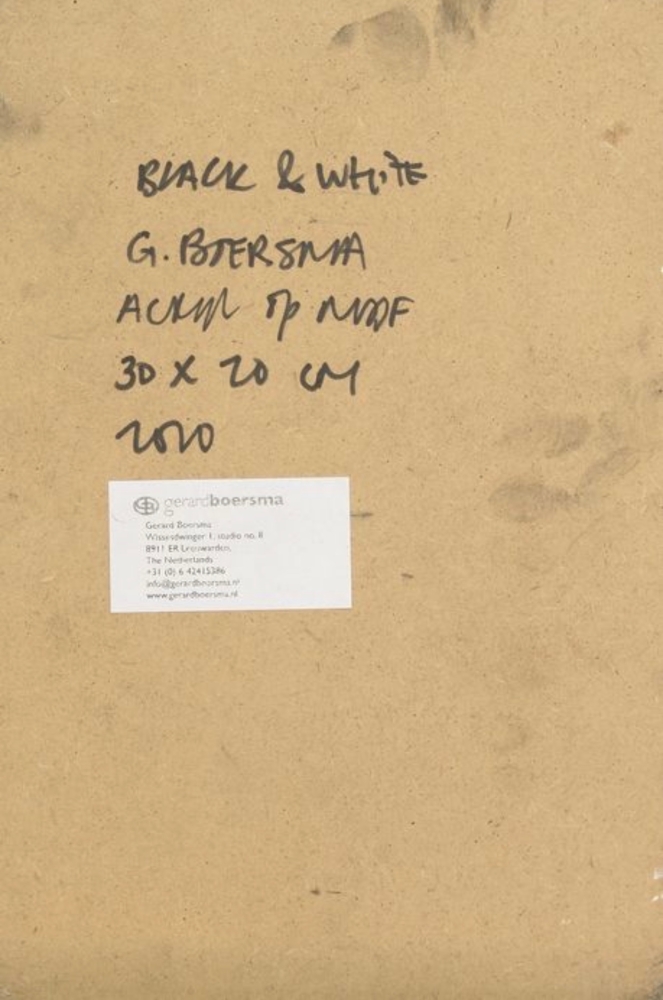 BLACK & WHITE
G. BOERSMA
ACRYL OP MDF
30 X 20 CM
2010
GB gerardboersma
Gerard Boersma
Wissesdwinger 1, studio no. 8
8911 ER Leeuwarden,
The Netherlands
+31 (0) 6 42415386
info@gerardboersma.nl
www.gerardboersma.nl